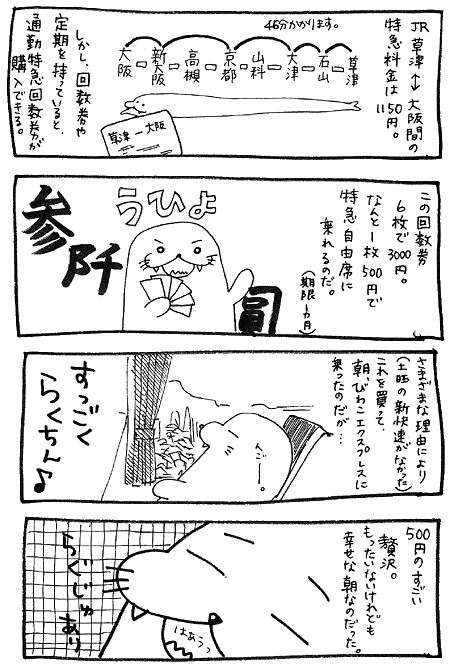 JR草津↔大阪間の
特急料金は1150円。
46分かかります。
大阪 新大阪 高槻 京都 山科 大津 石山 草津
草津ー大阪
しかし、回数券や
定期を持っていると、
通勤特急回数券が
購入できる。
この回数券
6枚で3000円。
なんと1枚500円で
特急自由席に
乗れるのだ。
(期限1カ月)
うひょ
参阡圓
さまざまな理由により
(土日の新快速がなかった)
これを買って、
朝、びわこエクスプレスに
乗ったのだが…
んごー。
すっごく
らくちん♪
500円のすごい
贅沢。
もったいないけれども
幸せな朝なのだった。
はぁうっ
らぐじゅあり